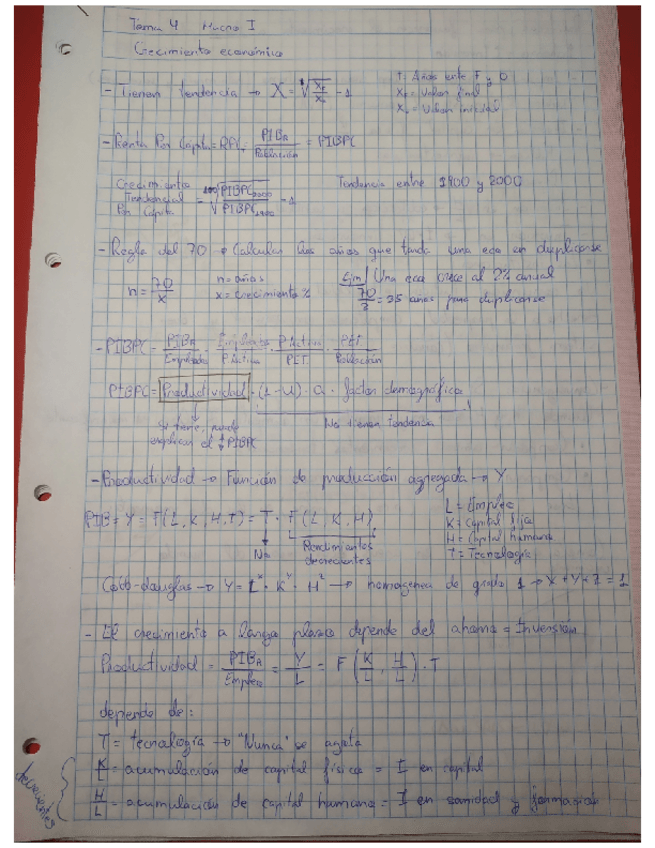 Tema 4 Macro I
Crecimiento económico
- Tienen tendencia → X = ᵗ√(X_F / X_0) - 1
t: Años entre F y 0
X_F = Valor final
X_0 = Valor Inicial
- Renta Per Cápita = RPC = PIB_R / Población = PIBPC
Crecimiento Tendencial Per Cápita = ¹⁰⁰√(PIBPC_2000 / PIBPC_1900) - 1
Tendencia entre 1900 y 2000
- Regla del 70 → Calcular los años que tarda una eca en duplicarse
n = 70 / x
n = años
x = crecimiento %
Ejm/ Una eca crece al 2% anual
70 / 2 = 35 años para duplicarse
- PIBPC = PIB_R / Empleados · Empleados / P Activa · P Activa / PET · PET / Población
PIBPC = Productividad · (1 - U) · a · factor demográfico
Si tiene, puede explicar el PIBPC
No tienen tendencia
- Productividad → Función de producción agregada → Y
PIB = Y = F(L, K, H, T) = T · F(L, K, H)
No
Rendimientos decrecientes
L = Empleo
K = Capital físico
H = Capital humano
T = Tecnología
Cobb-douglas → Y = L^x · K^y · H^z → homogenea de grado 1 → x + y + z = 1
- El crecimiento a largo plazo depende del ahorro = Inversión
Productividad = PIB_R / Empleo = Y / L = F(K / L, H / L) · T
depende de:
T = tecnología → "Nunca" se agota
K / L = acumulación de capital físico = I en capital
H / L = acumulación de capital humano = I en sanidad y formación
decrecientes